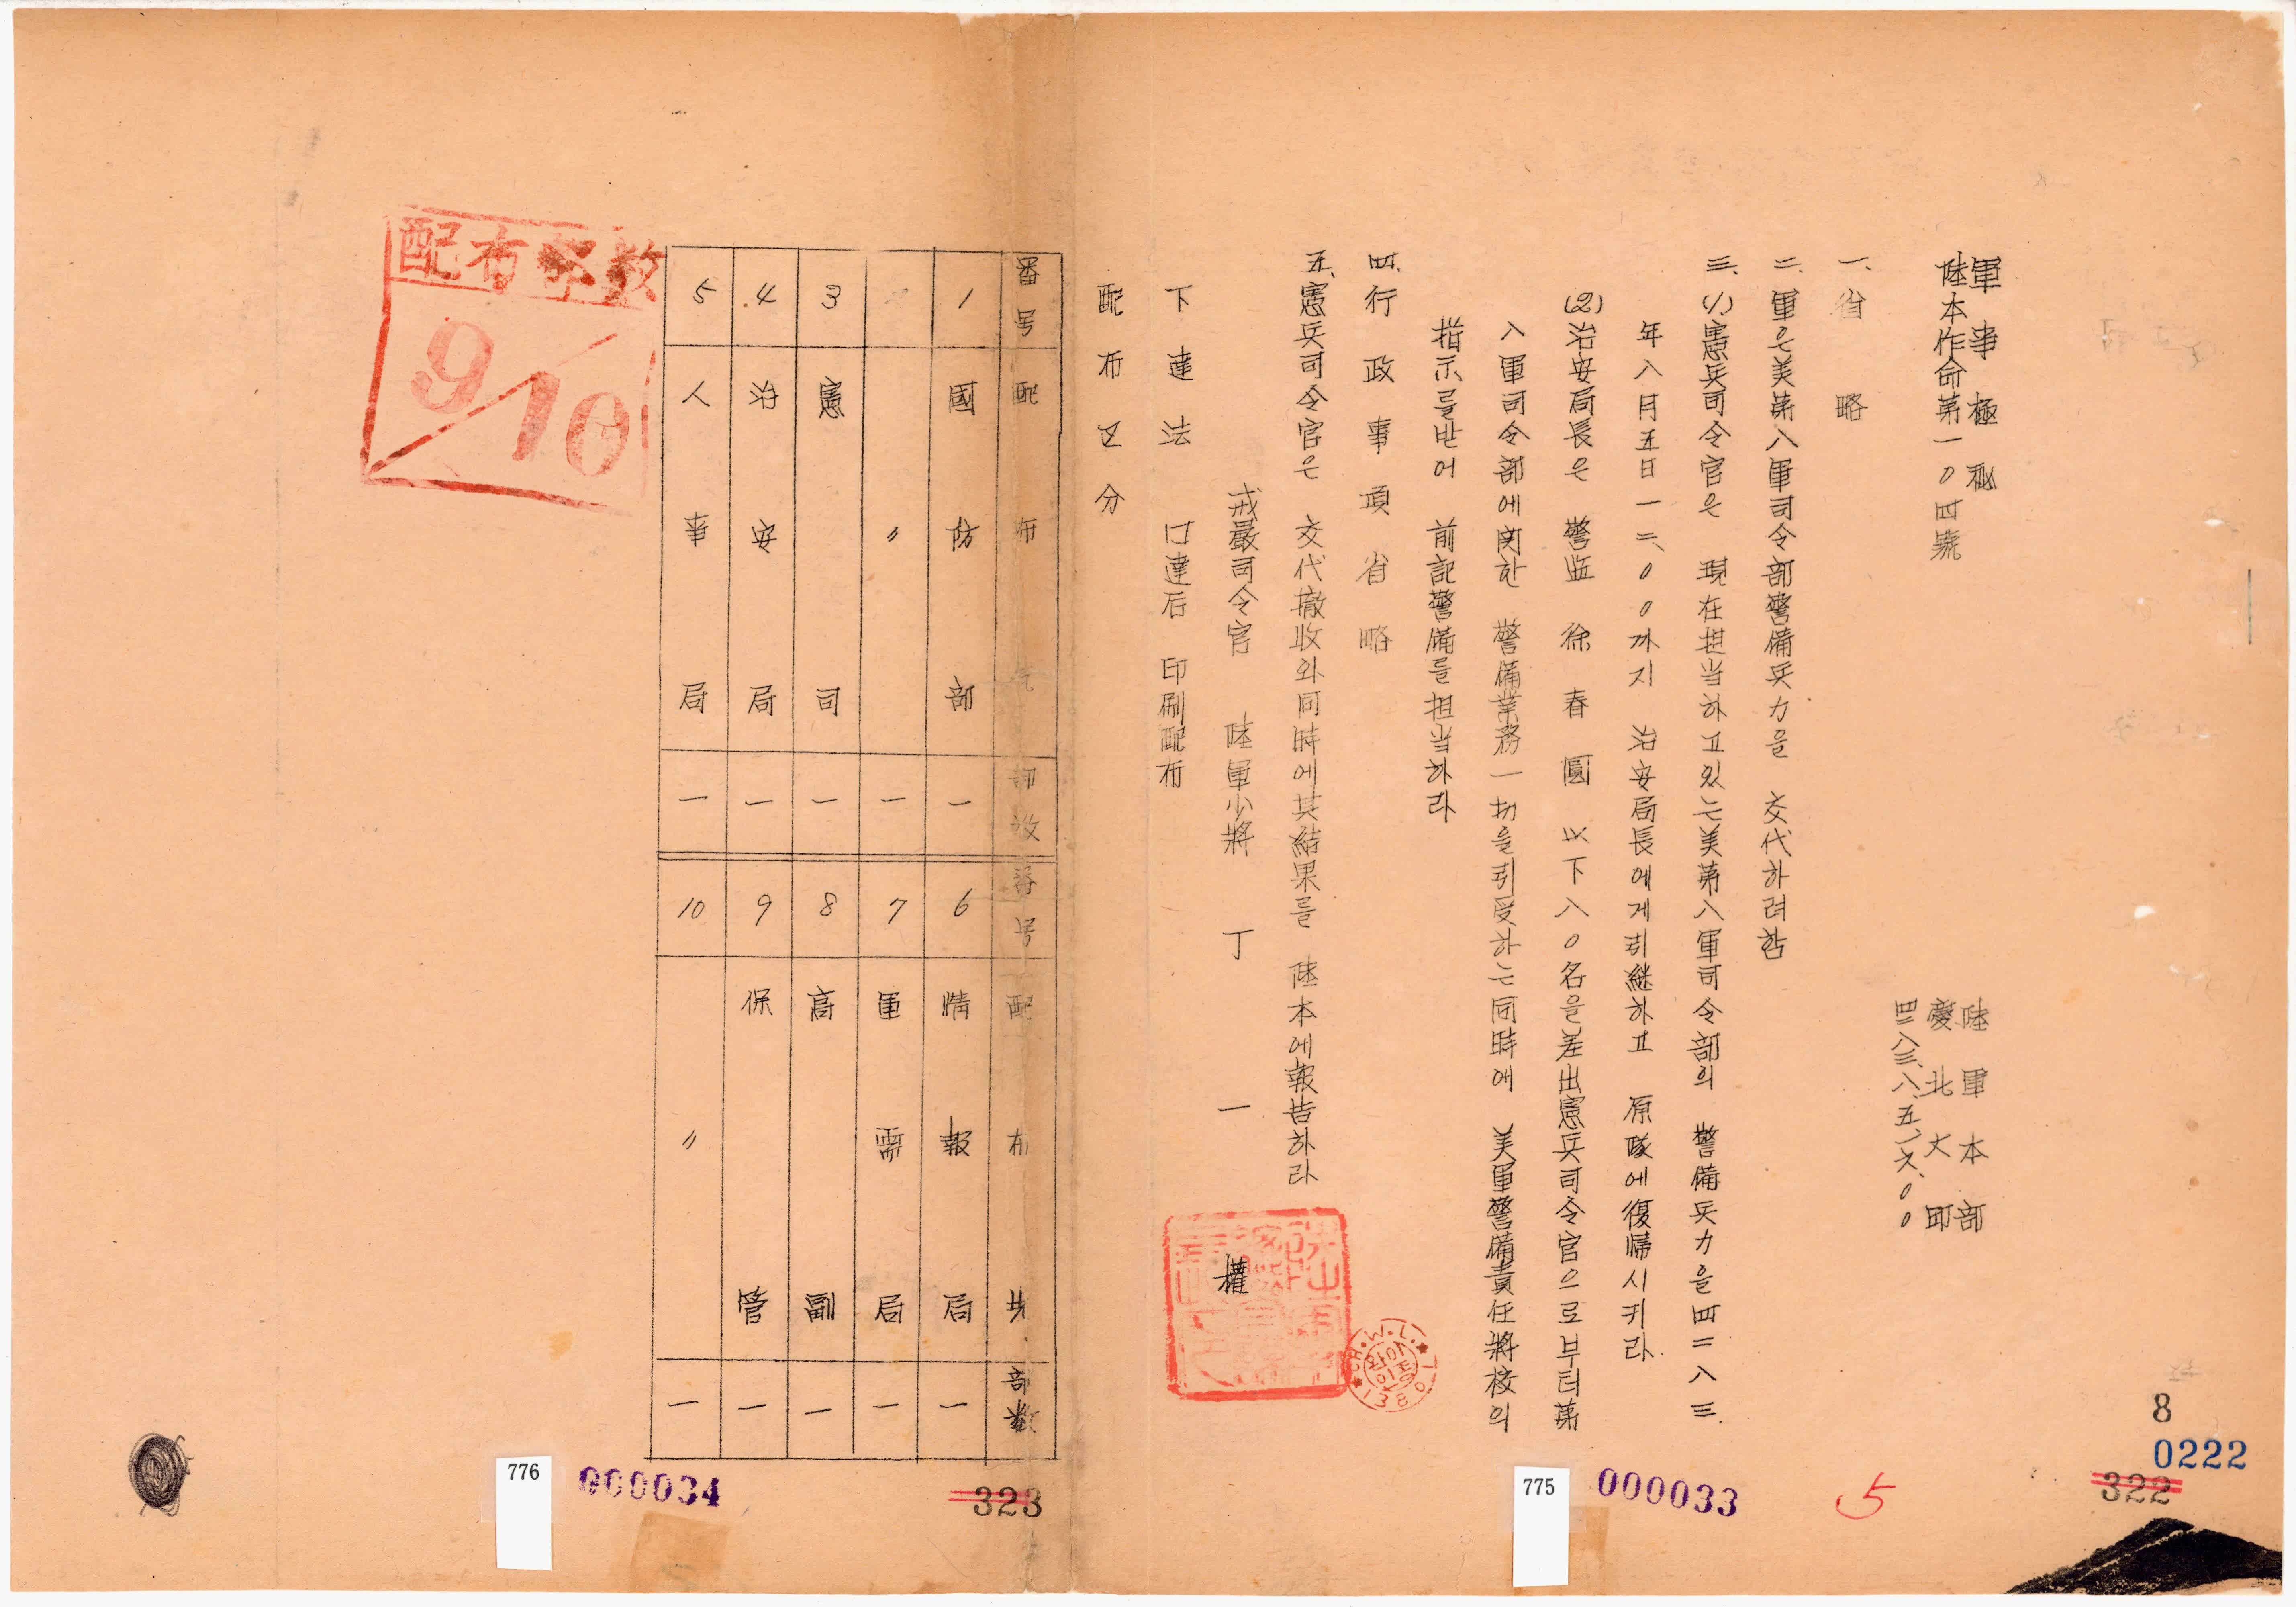 軍事極秘
陸本作命第一〇四號
陸軍本部
慶北大邱
四二八三、八、五、一六、〇〇
一、省略
二、軍은美第八軍司令部警備兵力을 交代하려함
三、(1)憲兵司令官은 現在担当하고있는美第八軍司令部의 警備兵力을四二八三.
年八月五日一二、〇〇까지 治安局長에게引継하고 原隊에復帰시키라
(2)治安局長은 警監 徐春圓 以下八〇名을差出憲兵司令官으로부터第
八軍司令部에関한 警備業務一切을引受하는同時에 美軍警備責任將校의
指示를받어 前記警備를担当하라
四、行政事項省略
五、憲兵司令官은 交代撤收와同時에其結果를 陸本에報告하라
戒嚴司令官 陸軍少將 丁一權
下達法 口達后 印刷配布
配布区分
番号 配布先 部数 番号 配布先 部数
1 國防部 一 6 情報局 一
〃 一 7 軍需局 一
3 憲司 一 8 高副 一
4 治安局 一 9 保管 一
5 人事局 一 10 〃 一
配布部数
9/10
8
0222
322
5
000033
775
323
000034
776